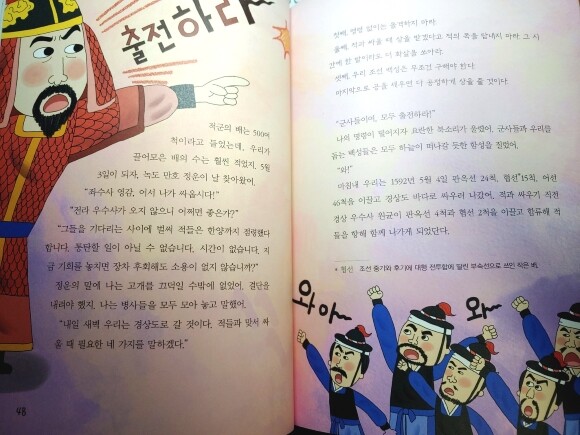 출전하라~
적군의 배는 500여
척이라고 들었는데, 우리가
끌어모은 배의 수는 훨씬 적었지. 5월
3일이 되자, 녹도 만호 정운이 날 찾아왔어.
"좌수사 영감, 어서 나가 싸웁시다!"
"전라 우수사가 오지 않으니 어쩌면 좋은가?"
"그들을 기다리는 사이에 벌써 적들은 한양까지 점령했다
합니다. 통탄할 일이 아닐 수 없습니다. 시간이 없습니다. 지
금 기회를 놓치면 장차 후회해도 소용이 없지 않습니까?"
정운의 말에 나는 고개를 끄덕일 수밖에 없었어. 결단을
내려야 했지. 나는 병사들을 모두 모아 놓고 말했어.
"내일 새벽 우리는 경상도로 갈 것이다. 적들과 맞서 싸
울 때 필요한 네 가지를 말하겠다."
48
첫째, 명령 없이는 출격하지 마라.
둘째, 적과 싸울 때 상을 받겠다고 적의 목을 탐내지 마라. 그 시
간에 한 발이라도 더 화살을 쏘아라.
셋째, 우리 조선 백성은 무조건 구해야 한다.
마지막으로 공을 세우면 다 공평하게 상을 줄 것이다.
"군사들이여, 모두 출전하라!"
나의 명령이 떨어지자 요란한 북소리가 울렸어. 군사들과 우리를
돕는 백성들은 모두 하늘이 떠나갈 듯한 함성을 질렀어.
"와!"
마침내 우리는 1592년 5월 4일 판옥선 24척, 협선*15척, 어선
46척을 이끌고 경상도 바다로 싸우러 나갔어. 적과 싸우기 직전
경상 우수사 원균이 판옥선 4척과 협선 2척을 이끌고 합류해 적
들을 향해 함께 나가게 되었단다.
* 협선 조선 중기와 후기에 대형 전투함에 딸린 부속선으로 쓰인 작은 배.
와아~
와~